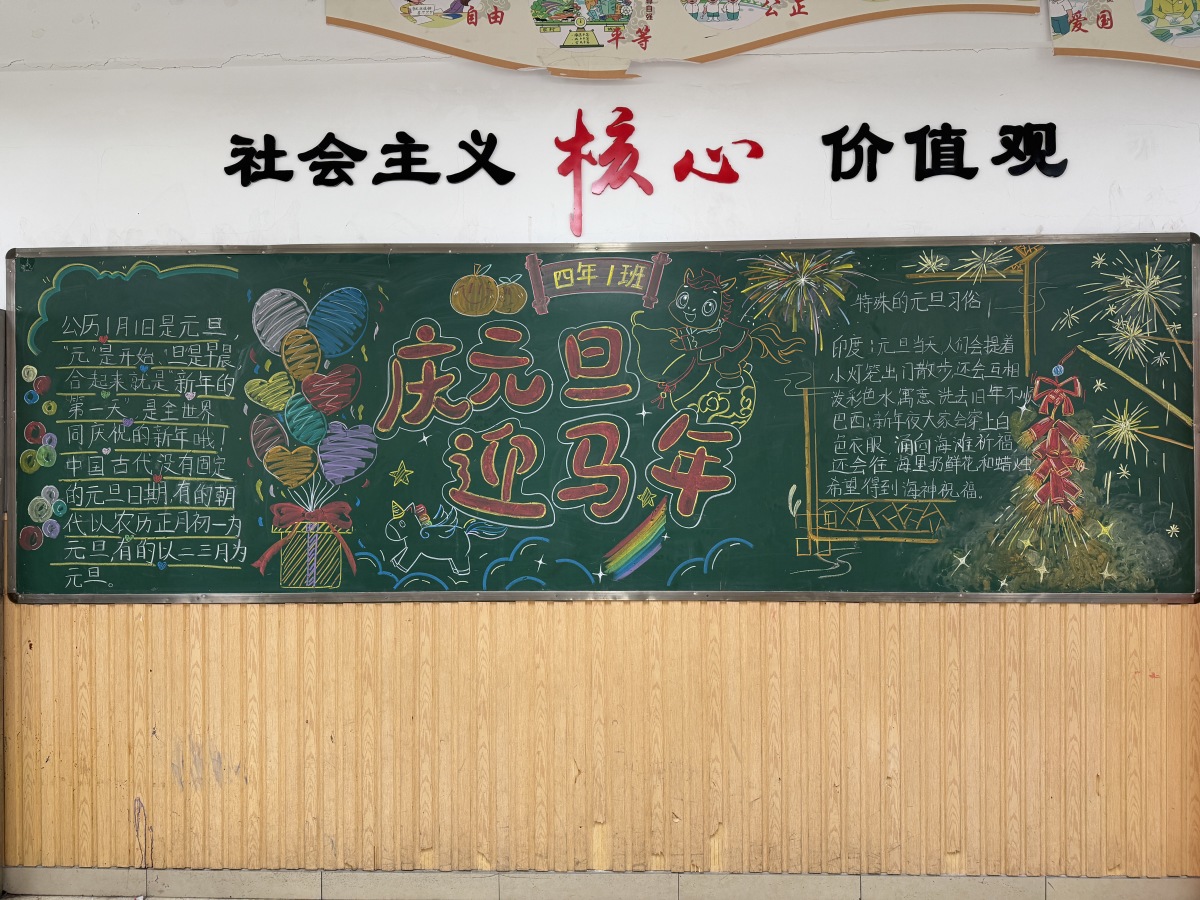 自由
平等
公正
爱国
社会主义 核心 价值观
四年1班
庆元旦
迎马年
公历1月1日是元旦
"元"是开始,"旦是早晨
合起来就是"新年的
第一天"是全世界
同庆祝的新年哦!
中国古代没有固定
的元旦日期,有的朝
代以农历正月初一为
元旦,有的以二三月为
元旦。
特殊的元旦习俗
印度:元旦当天,人们会提着
小灯笼出门散步,还会互相
泼彩色水,寓意洗去旧年不顺
巴西:新年夜大家会穿上白
色衣服,涌向海滩祈福,
还会往海里扔鲜花和蜡烛
希望得到海神祝福。